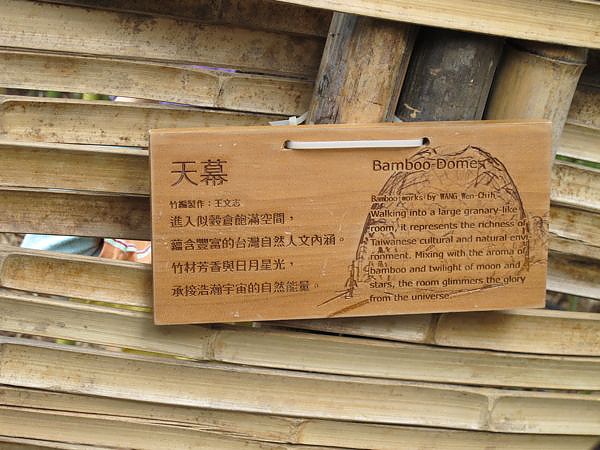 天幕
竹編製作：王文志
進入似穀倉飽滿空間，
蘊含豐富的台灣自然人文內涵。
竹材芳香與日月星光，
承接浩瀚宇宙的自然能量。
Bamboo-Domes
Bamboo works by WANG Wen-Chih
Walking into a large granary-like
room, it represents the richness of
Taiwanese cultural and natural env
ronment. Mixing with the aroma of
bamboo and twilight of moon and
stars, the room glimmers the glory
from the universe.